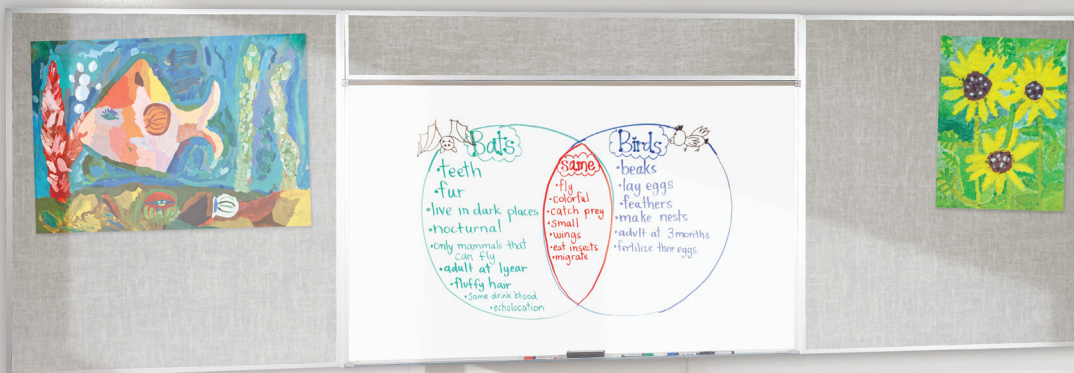 Bats
•teeth
•fur
•live in dark places
•nocturnal
•only mammals that
can fly
•adult at 1year
•fluffy hair
•Some drink blood
•echolocation
same
•fly
•colorful
•catch prey
•small
•wings
•eat insects
•migrate
Birds
•beaks
•lay eggs
•feathers
•make nests
•adult at 3months
•fertilize ther eggs